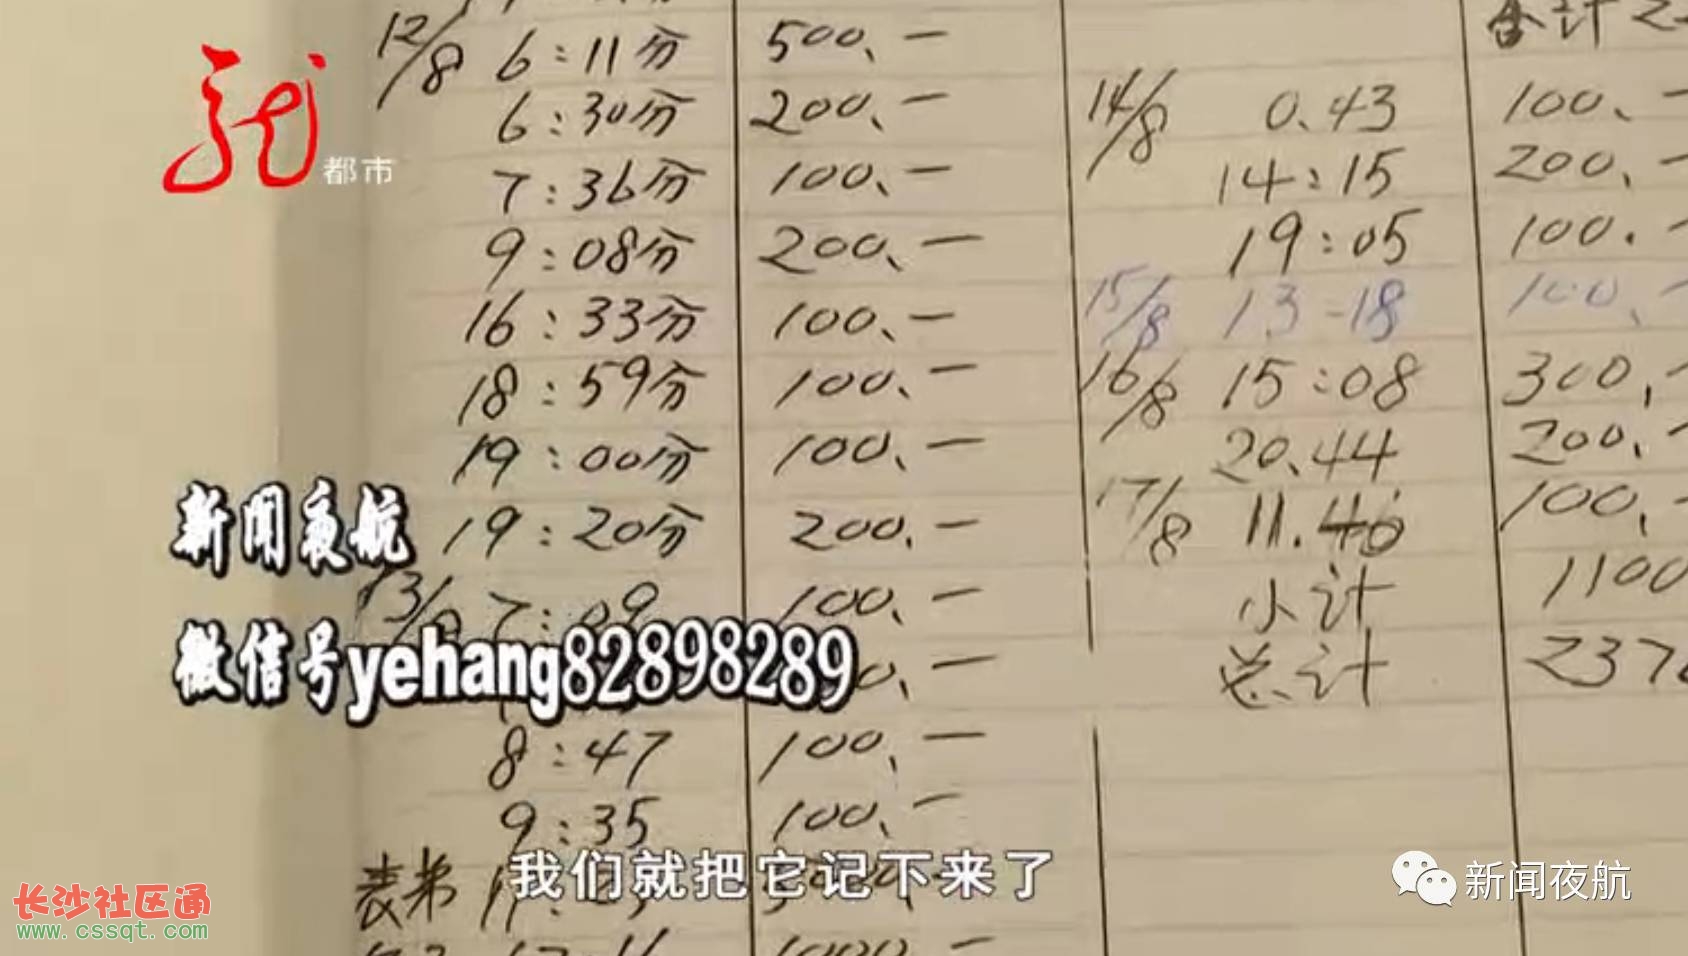 12/8 6:11分 500、—
6:30分 200、—
7:36分 100、—
9:08分 200、—
16:33分 100、—
18:59分 100、—
19:00分 100、—
19:20分 200、—
13/8 7:09 100、—
8:47 100、—
9:35 100、—
表弟
合计
14/8 0.43 100、—
14:15 200、—
19:05 100.—
15/8 13-18 100、—
16/8 15:08 300、—
20.44 200、—
17/8 11.46 100、—
小计 1100
总计 237
龙
都市
新闻夜航
微信号yehang82898289
我们就把它记下来了
新闻夜航
长沙社区通
www.cssqt.com